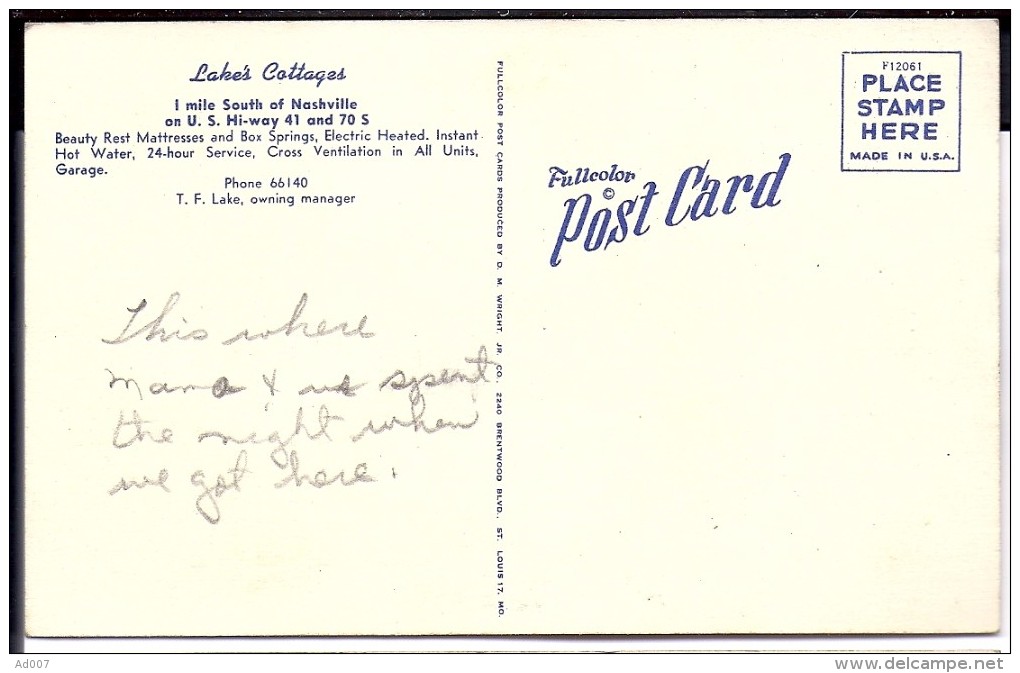 Lake's Cottages
1 mile South of Nashville
on U. S. Hi-way 41 and 70 S
Beauty Rest Mattresses and Box Springs, Electric Heated. Instant
Hot Water, 24-hour Service, Cross Ventilation in All Units,
Garage.
Phone 66140
T. F. Lake, owning manager
This where
Mama & us spent
the night when
we got here.
FULLCOLOR POST CARDS PRODUCED BY D. M. WRIGHT, JR. CO., 2240 BRENTWOOD BLVD., ST. LOUIS 17, MO.
Fullcolor
©
Post Card
F12061
PLACE
STAMP
HERE
MADE IN U.S.A.
Ad007
www.delcampe.net